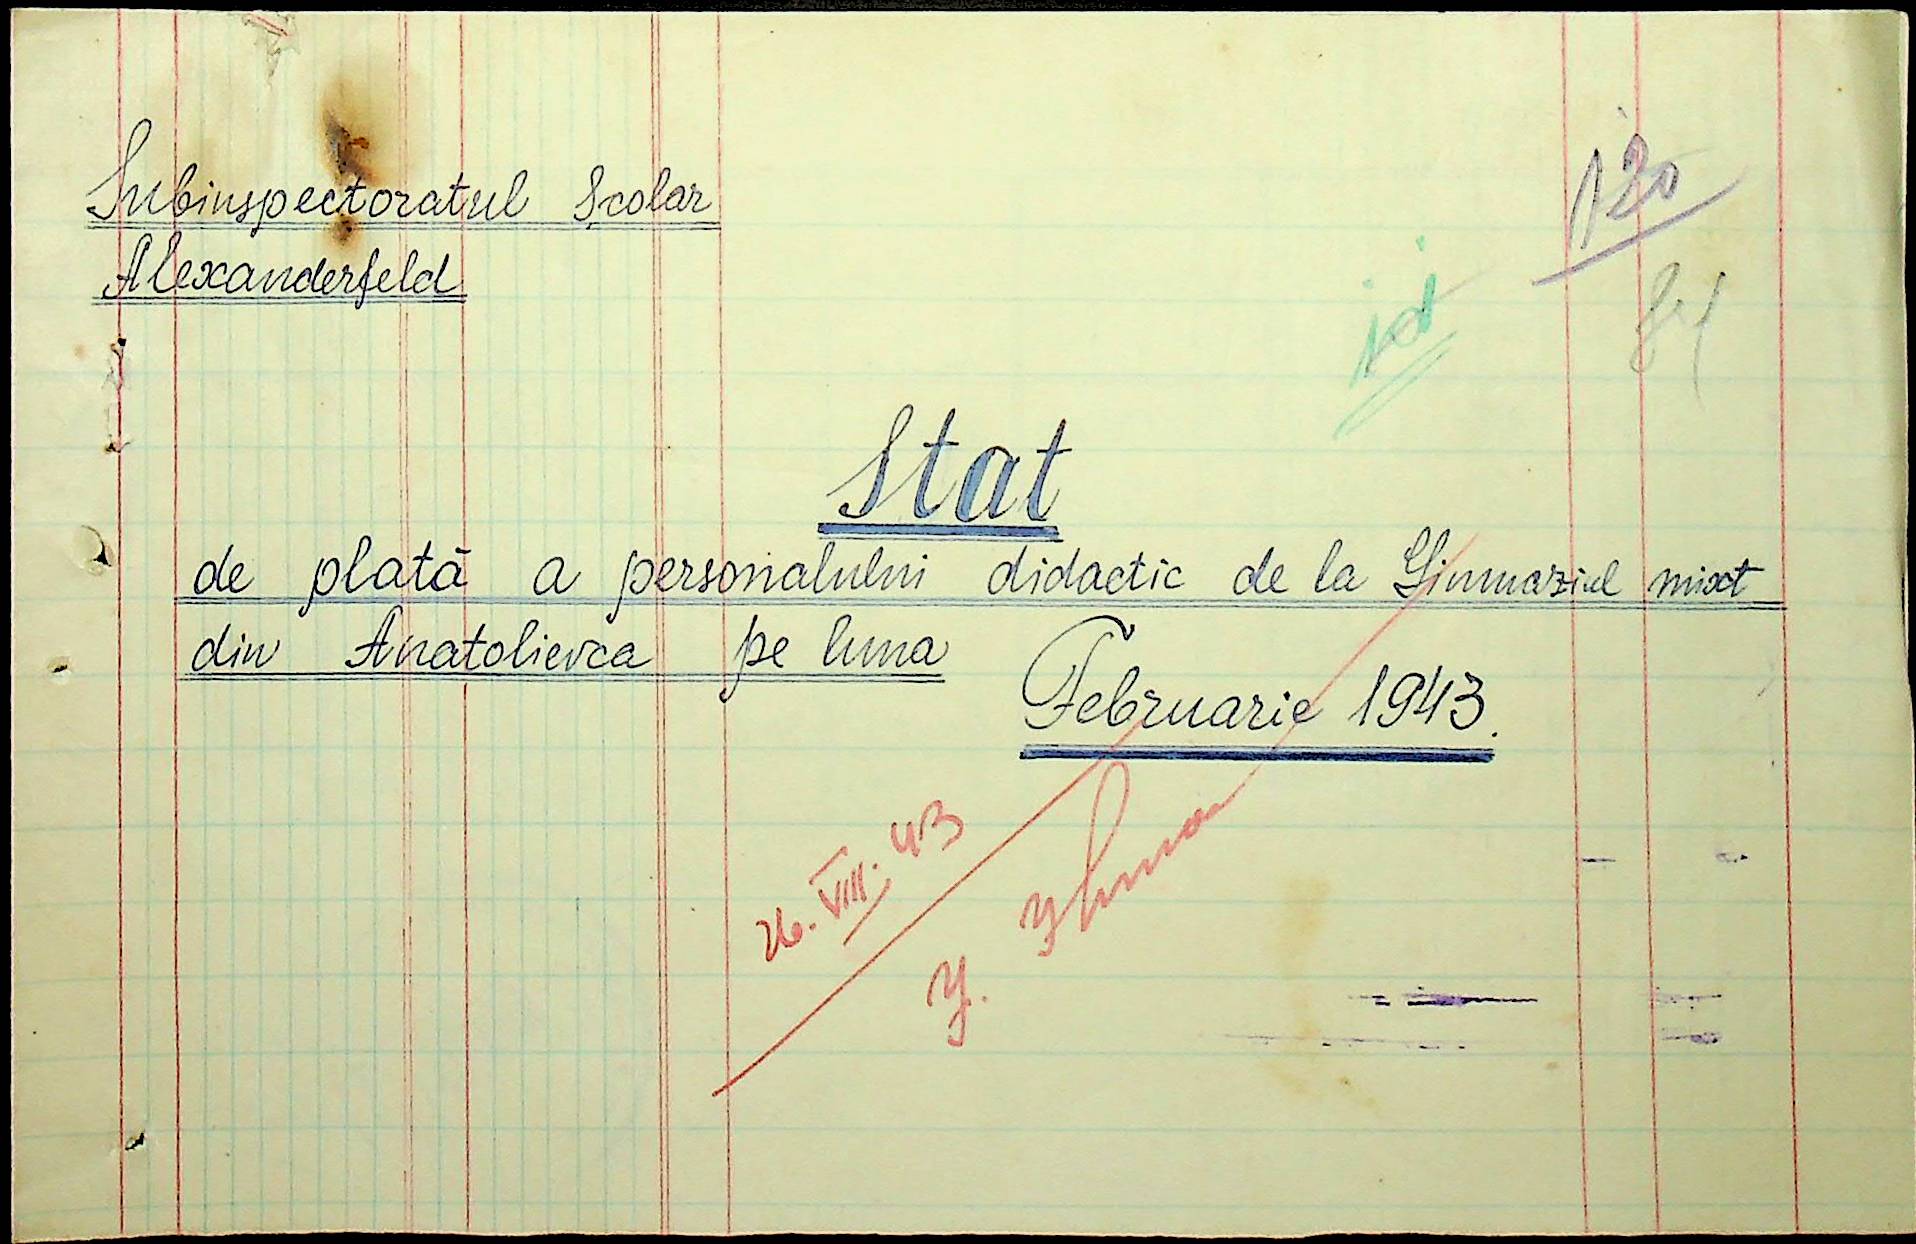 Subinspectoratul Școlar
Alexanderfeld
120
Stat
de plată a personalului didactic de la Gimnaziul mixt
din Anatolievca pe luna
Februarie 1943.
26. VIII. 43